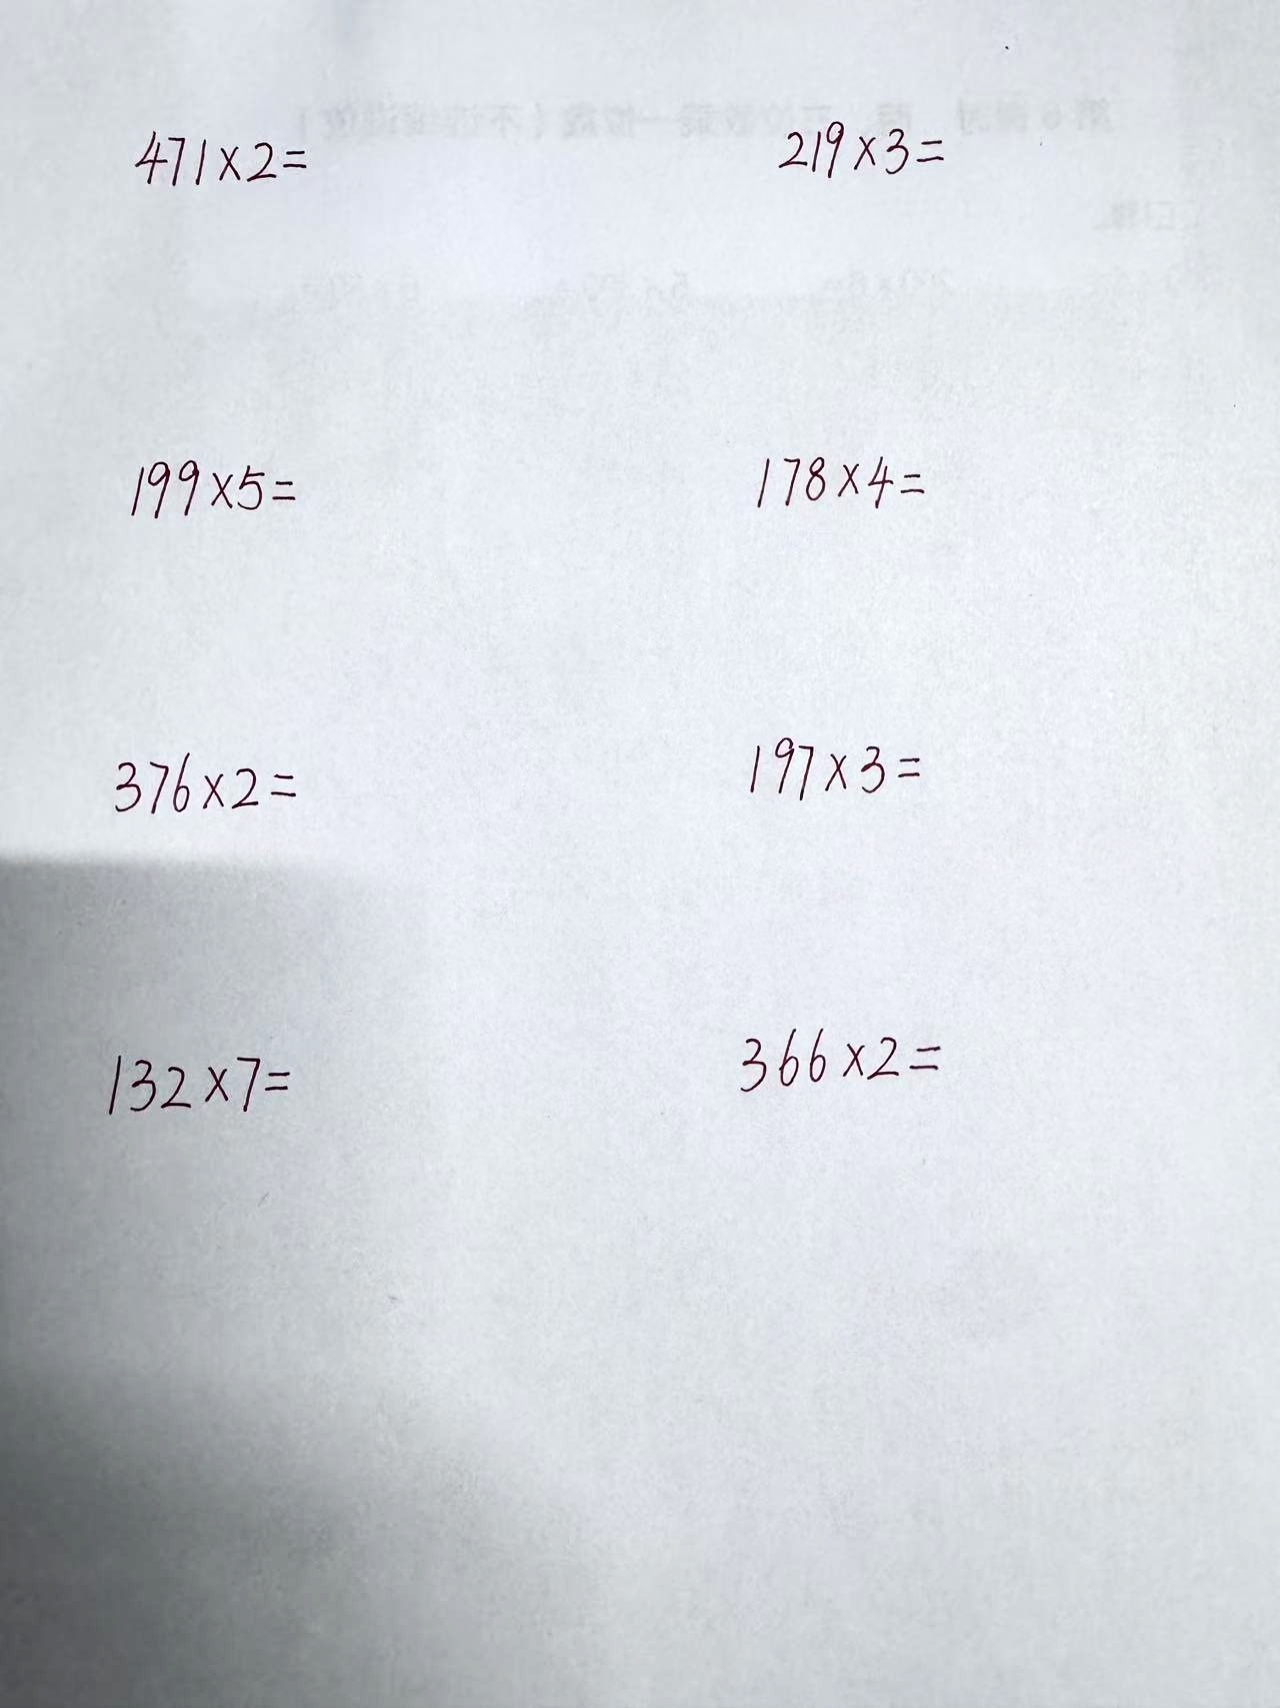 471×2= 219×3=
199×5= 178×4=
376×2= 197×3=
132×7= 366×2=